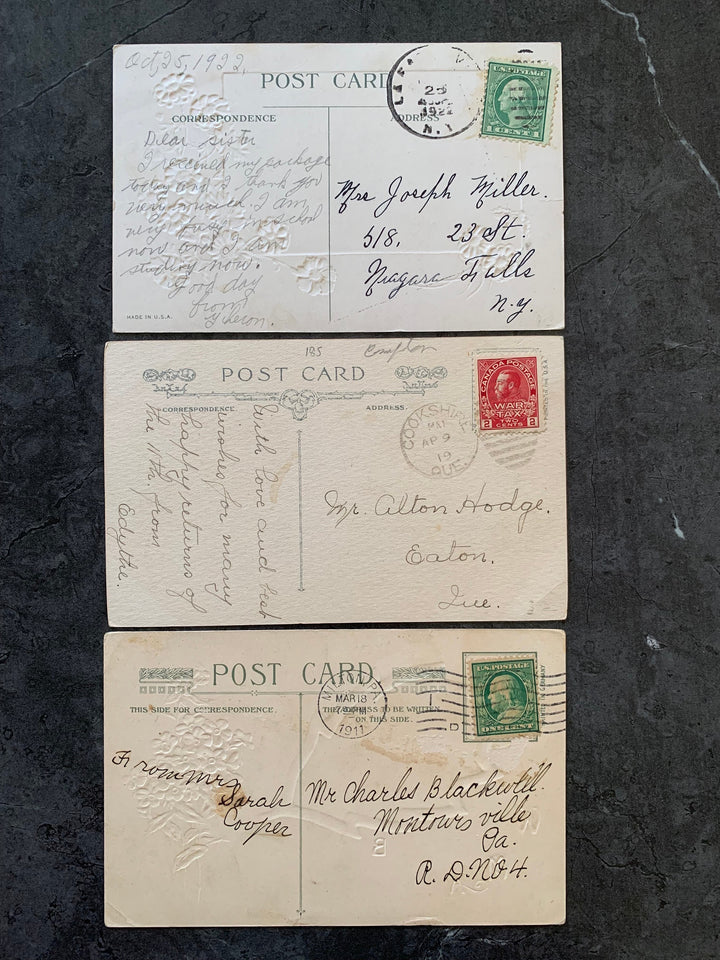 Oct, 25, 1922,
POST CARD
CORRESPONDENCE
ADDRESS
25
1922
N.Y.
U.S. POSTAGE
1 CENT 1
Dear Sister
I received my package
today and I thank you
very much. I am
very busy in school
now and I am
studying now.
Good day
from
Mrs Joseph Miller.
518, 23 St.
Niagara Falls
N.Y.
MADE IN U.S.A.
185 Compton
POST CARD
CORRESPONDENCE
ADDRESS.
COOKSHIRE
PM
AP 9
19
QUE.
CANADA POSTAGE
WAR
TAX
2 TWO CENTS 2
With love and best
wishes for many
happy returns of
the 11th. from
Edythe.
Mr. Alton Hodge.
Eaton,
Que.
POST CARD
THIS SIDE FOR CORRESPONDENCE.
THE ADDRESS TO BE WRITTEN
ON THIS SIDE.
MAR 18
1911
U.S. POSTAGE
ONE CENT
GERMANY
From Mrs
Sarah
Cooper
Mr Charles Blackwell.
Montoursville
Pa.
R.D. No 4.